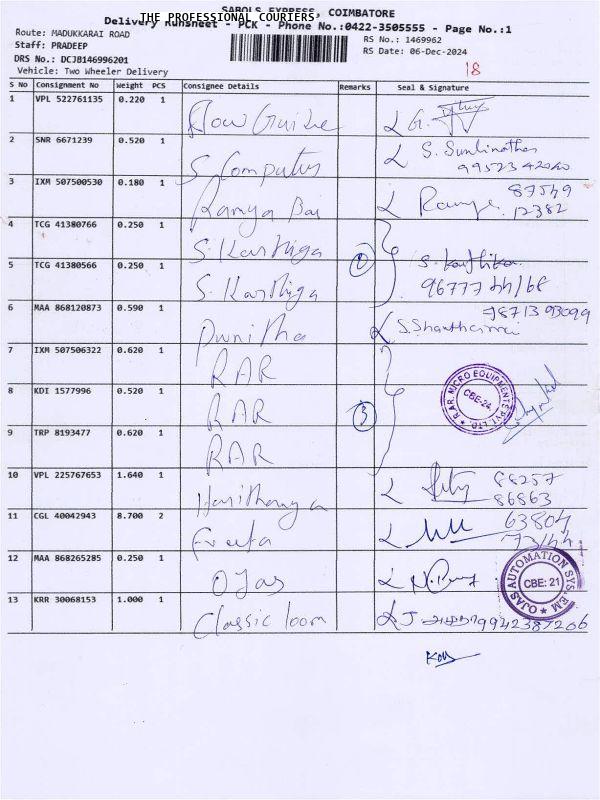 SABOLS EXPRESS, COIMBATORE
THE PROFESSIONAL COURIERS
Delivery Runsheet - PCK - Phone No.:0422-3505555 - Page No.:1
Route: MADUKKARAI ROAD
RS No.: 1469962
Staff: PRADEEP
RS Date: 06-Dec-2024
DRS No.: DCJB146996201
18
Vehicle: Two Wheeler Delivery
S No Consignment No Weight PCS Consignee Details Remarks Seal & Signature
1 VPL 522761135 0.220 1
2 SNR 6671239 0.520 1 S. Computers S. Sunlinathan
99523 42040
3 IXM 507500530 0.180 1 Ramya Bai Ramya 87549
12382
4 TCG 41380766 0.250 1 S. Karthiga
5 TCG 41380566 0.250 1 S. Karthiga S. Karthika
96777 44168
6 MAA 868120873 0.590 1 Punitha 98713 93099
7 IXM 507506322 0.620 1 RAR
8 KDI 1577996 0.520 1 RAR 3
R.A.R. MICRO EQUIPMENTS PVT LTD. CBE-24
9 TRP 8193477 0.620 1 RAR
10 VPL 225767653 1.640 1 88257
86863
11 CGL 40042943 8.700 2 63804
12 MAA 868265285 0.250 1 Ojas
OJAS AUTOMATION SYSTEM CBE: 21
13 KRR 30068153 1.000 1 Classic loom 9942387206